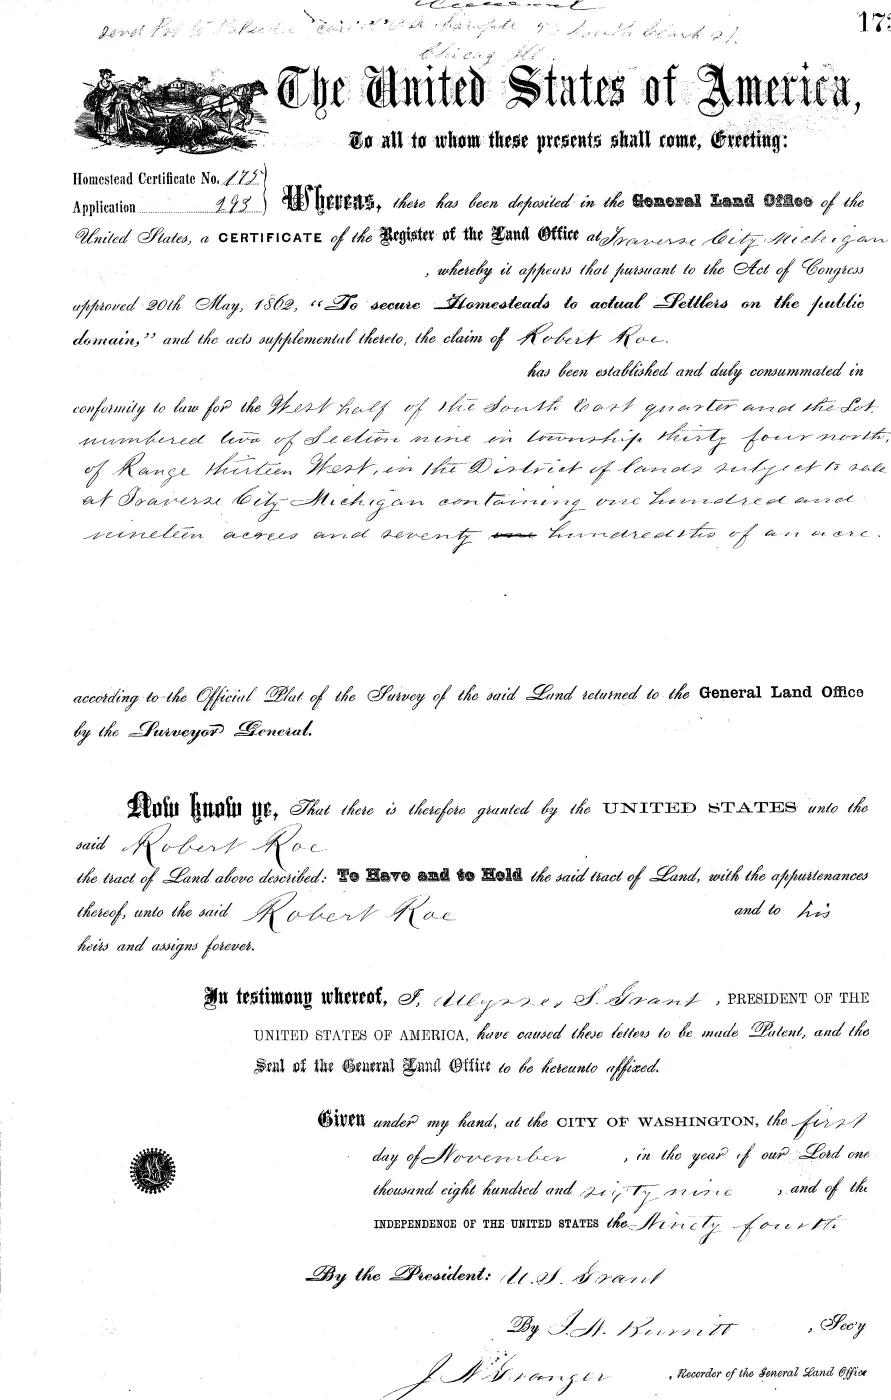 173
send Pat to
South Clark St.
Chicag Ill
The United States of America,
To all to whom these presents shall come, Greeting:
Homestead Certificate No. 175
Application 293
Whereas, there has been deposited in the General Land Office of the
United States, a CERTIFICATE of the Register of the Land Office at Traverse City Michigan
, whereby it appears that pursuant to the Act of Congress
approved 20th May, 1862, “To secure Homesteads to actual Settlers on the public
domain,” and the acts supplemental thereto, the claim of Robert Roe.
has been established and duly consummated in
conformity to law for the West half of the South East quarter and the Lot
numbered two of Section nine in township thirty four north,
of Range thirteen West, in the District of lands subject to sale
at Traverse City Michigan containing one hundred and
nineteen acres and seventy one hundredths of an acre.
according to the Official Plat of the Survey of the said Land returned to the General Land Office
by the Surveyor General.
Now know ye, That there is therefore granted by the UNITED STATES unto the
said Robert Roe
the tract of Land above described: To Have and to Hold the said tract of Land, with the appurtenances
thereof, unto the said Robert Roe and to his
heirs and assigns forever.
In testimony whereof, I, Ulysses S. Grant, PRESIDENT OF THE
UNITED STATES OF AMERICA, have caused these letters to be made Patent, and the
Seal of the General Land Office to be hereunto affixed.
Given under my hand, at the CITY OF WASHINGTON, the first
day of November, in the year of our Lord one
thousand eight hundred and sixty nine, and of the
INDEPENDENCE OF THE UNITED STATES the Ninety fourth
By the President: U. S. Grant
By , Sec'y
J N Granger, Recorder of the General Land Office